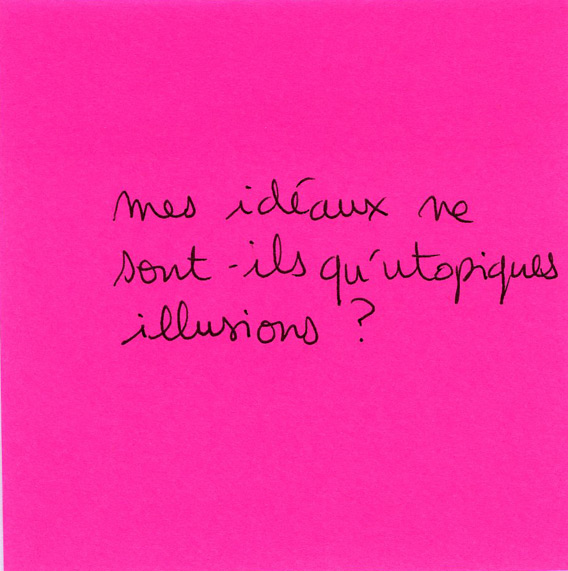 mes idéaux ne
sont-ils qu'utopiques
illusions ?